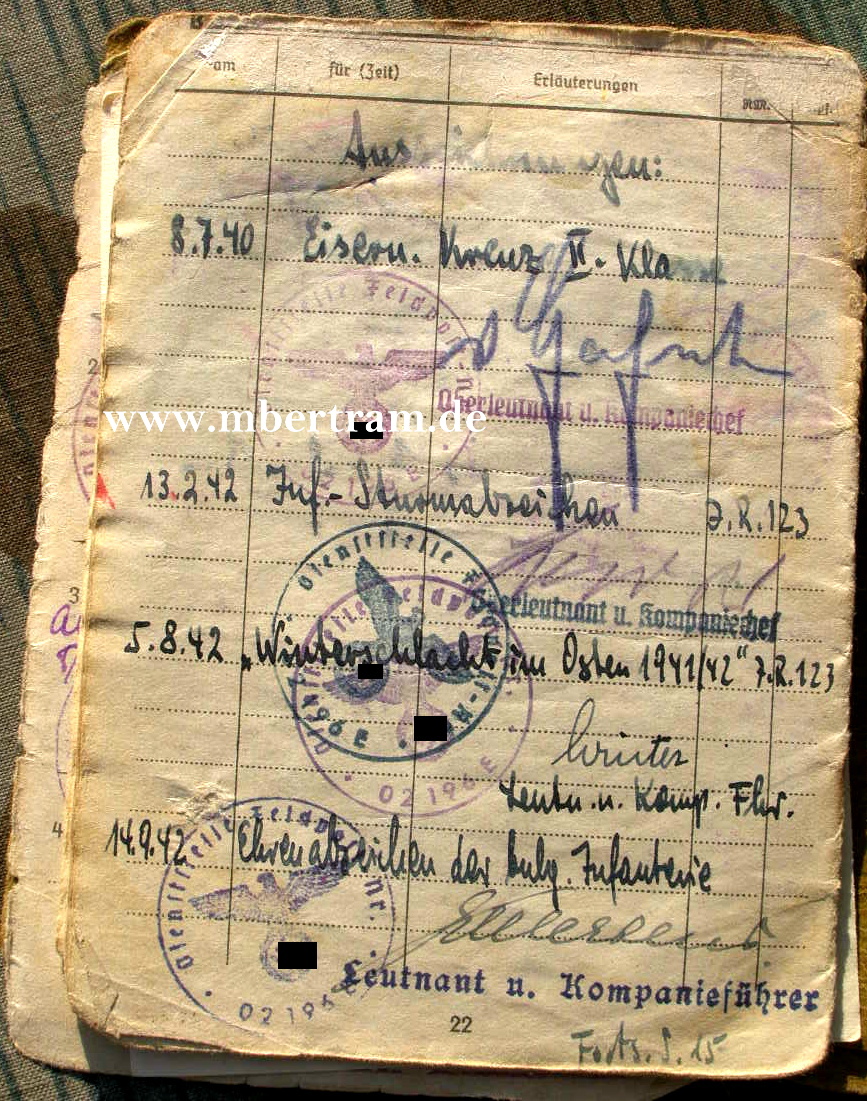 am für (Zeit) Erläuterungen RM.
Auszeichnungen:
8.7.40 Eisern. Kreuz II. Klasse
Dienststelle Feldpost
Oberleutnant u. Kompaniechef
www.mbertram.de
13.2.42 Inf.-Sturmabzeichen J.R.123
Dienststelle
Oberleutnant u. Kompaniechef
5.8.42 „Winterschlacht im Osten 1941/42" J.R.123
02196E
Winter
Leutn. u. Komp. Fhr.
14.9.42 Ehrenabzeichen der bulg. Infanterie
Dienststelle Feldpost Nr.
02196E
Leutnant u. Kompanieführer
22
Forts. S. 15
2
3
4